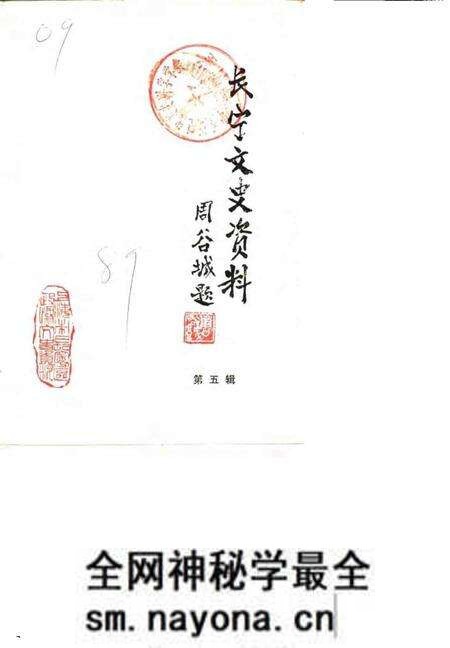 09
长宁文史资料
周谷城题
89
第五辑
全网神秘学最全
sm.nayona.cn